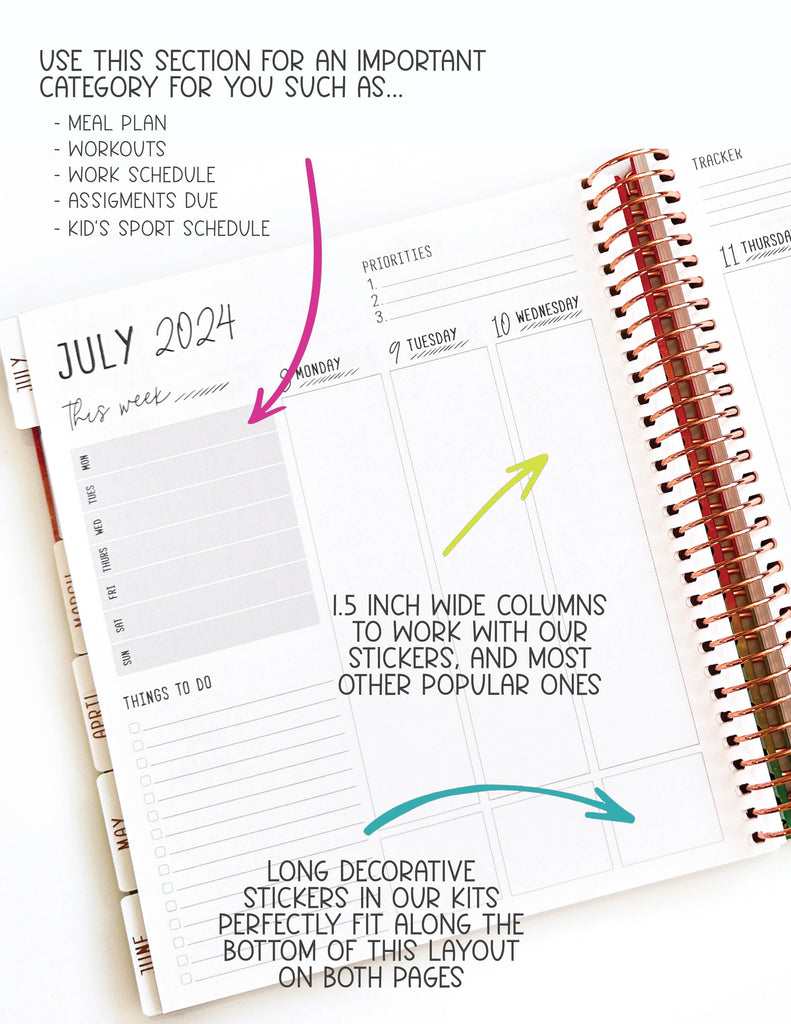 USE THIS SECTION FOR AN IMPORTANT
CATEGORY FOR YOU SUCH AS...
- MEAL PLAN
- WORKOUTS
- WORK SCHEDULE
- ASSIGMENTS DUE
- KID'S SPORT SCHEDULE
TRACKER
PRIORITIES
1.
2.
3.
JULY 2024
This week
8 MONDAY
9 TUESDAY
10 WEDNESDAY
11 THURSDA
MON
TUES
WED
THURS
FRI
SAT
SUN
THINGS TO DO
JULY
MARCH
APRIL
MAY
JUNE
1.5 INCH WIDE COLUMNS
TO WORK WITH OUR
STICKERS, AND MOST
OTHER POPULAR ONES
LONG DECORATIVE
STICKERS IN OUR KITS
PERFECTLY FIT ALONG THE
BOTTOM OF THIS LAYOUT
ON BOTH PAGES